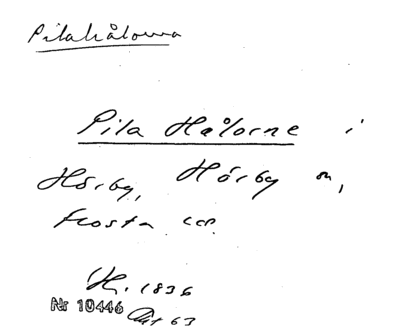 Pilahålorna
Pila Hålorne i
Hörby, Hörby sn,
Frosta hd.
H. 1836
Nr 10446 Akt 63